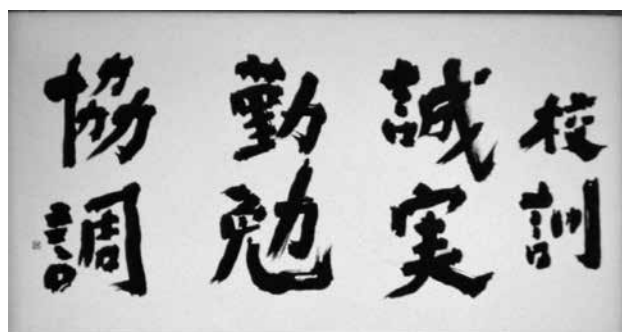 校訓
誠実
勤勉
協調